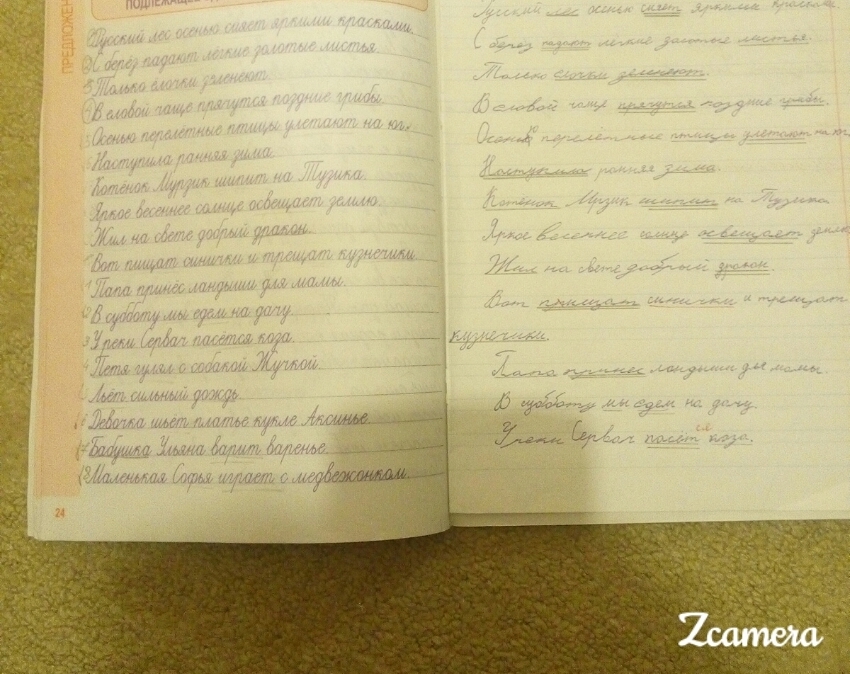 ПРЕДЛОЖЕН
ПОДЛЕЖАЩЕЕ
Русский лес осенью сияет яркими красками.
С берёз падают лёгкие золотые листья.
Только ёлочки зеленеют.
В еловой чаще прячутся поздние грибы.
Осенью перелётные птицы улетают на юг.
Наступила ранняя зима.
Котёнок Мурзик шипит на Тузика.
Яркое весеннее солнце освещает землю.
Жил на свете добрый дракон.
Вот пищат синички и трещат кузнечики.
Папа принёс ландыши для мамы.
В субботу мы едем на дачу.
У реки Сервач пасётся коза.
Петя гулял с собакой Жучкой.
Льёт сильный дождь.
Девочка шьёт платье кукле Аксинье.
Бабушка Ульяна варит варенье.
18 Маленькая Софья играет с медвежонком.
24
Русский лес осенью сияет яркими красками.
С берёз падают лёгкие золотые листья.
Только ёлочки зеленеют.
В еловой чаще прячутся поздние грибы.
Осенью перелётные птицы улетают на юг
Наступила ранняя зима.
Котёнок Мрзик шипит на Тузика
Яркое весеннее солнце освещает земл
Жил на свете добрый дракон.
Вот пищат синички и трещат
кузнечики.
Папа принес ландыши для мамы.
В субботу мы едем на дачу.
У реки Сервач пасётся коза.
Zcamera